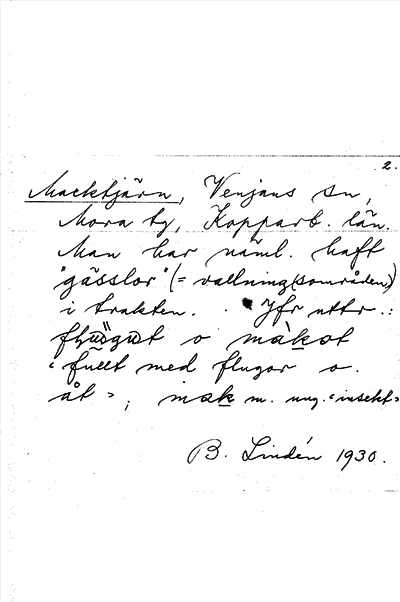 2.
Macktjärn, Venjans sn,
Mora tg, Kopparb. län.
Man har näml. haft
"gässlor" (= vallning(sområden))
i trakten. Jfr uttr.:
o màkot
"fullt med flugor o.
åt"; mak m. ung. "insekt"
B. Lindén 1930.